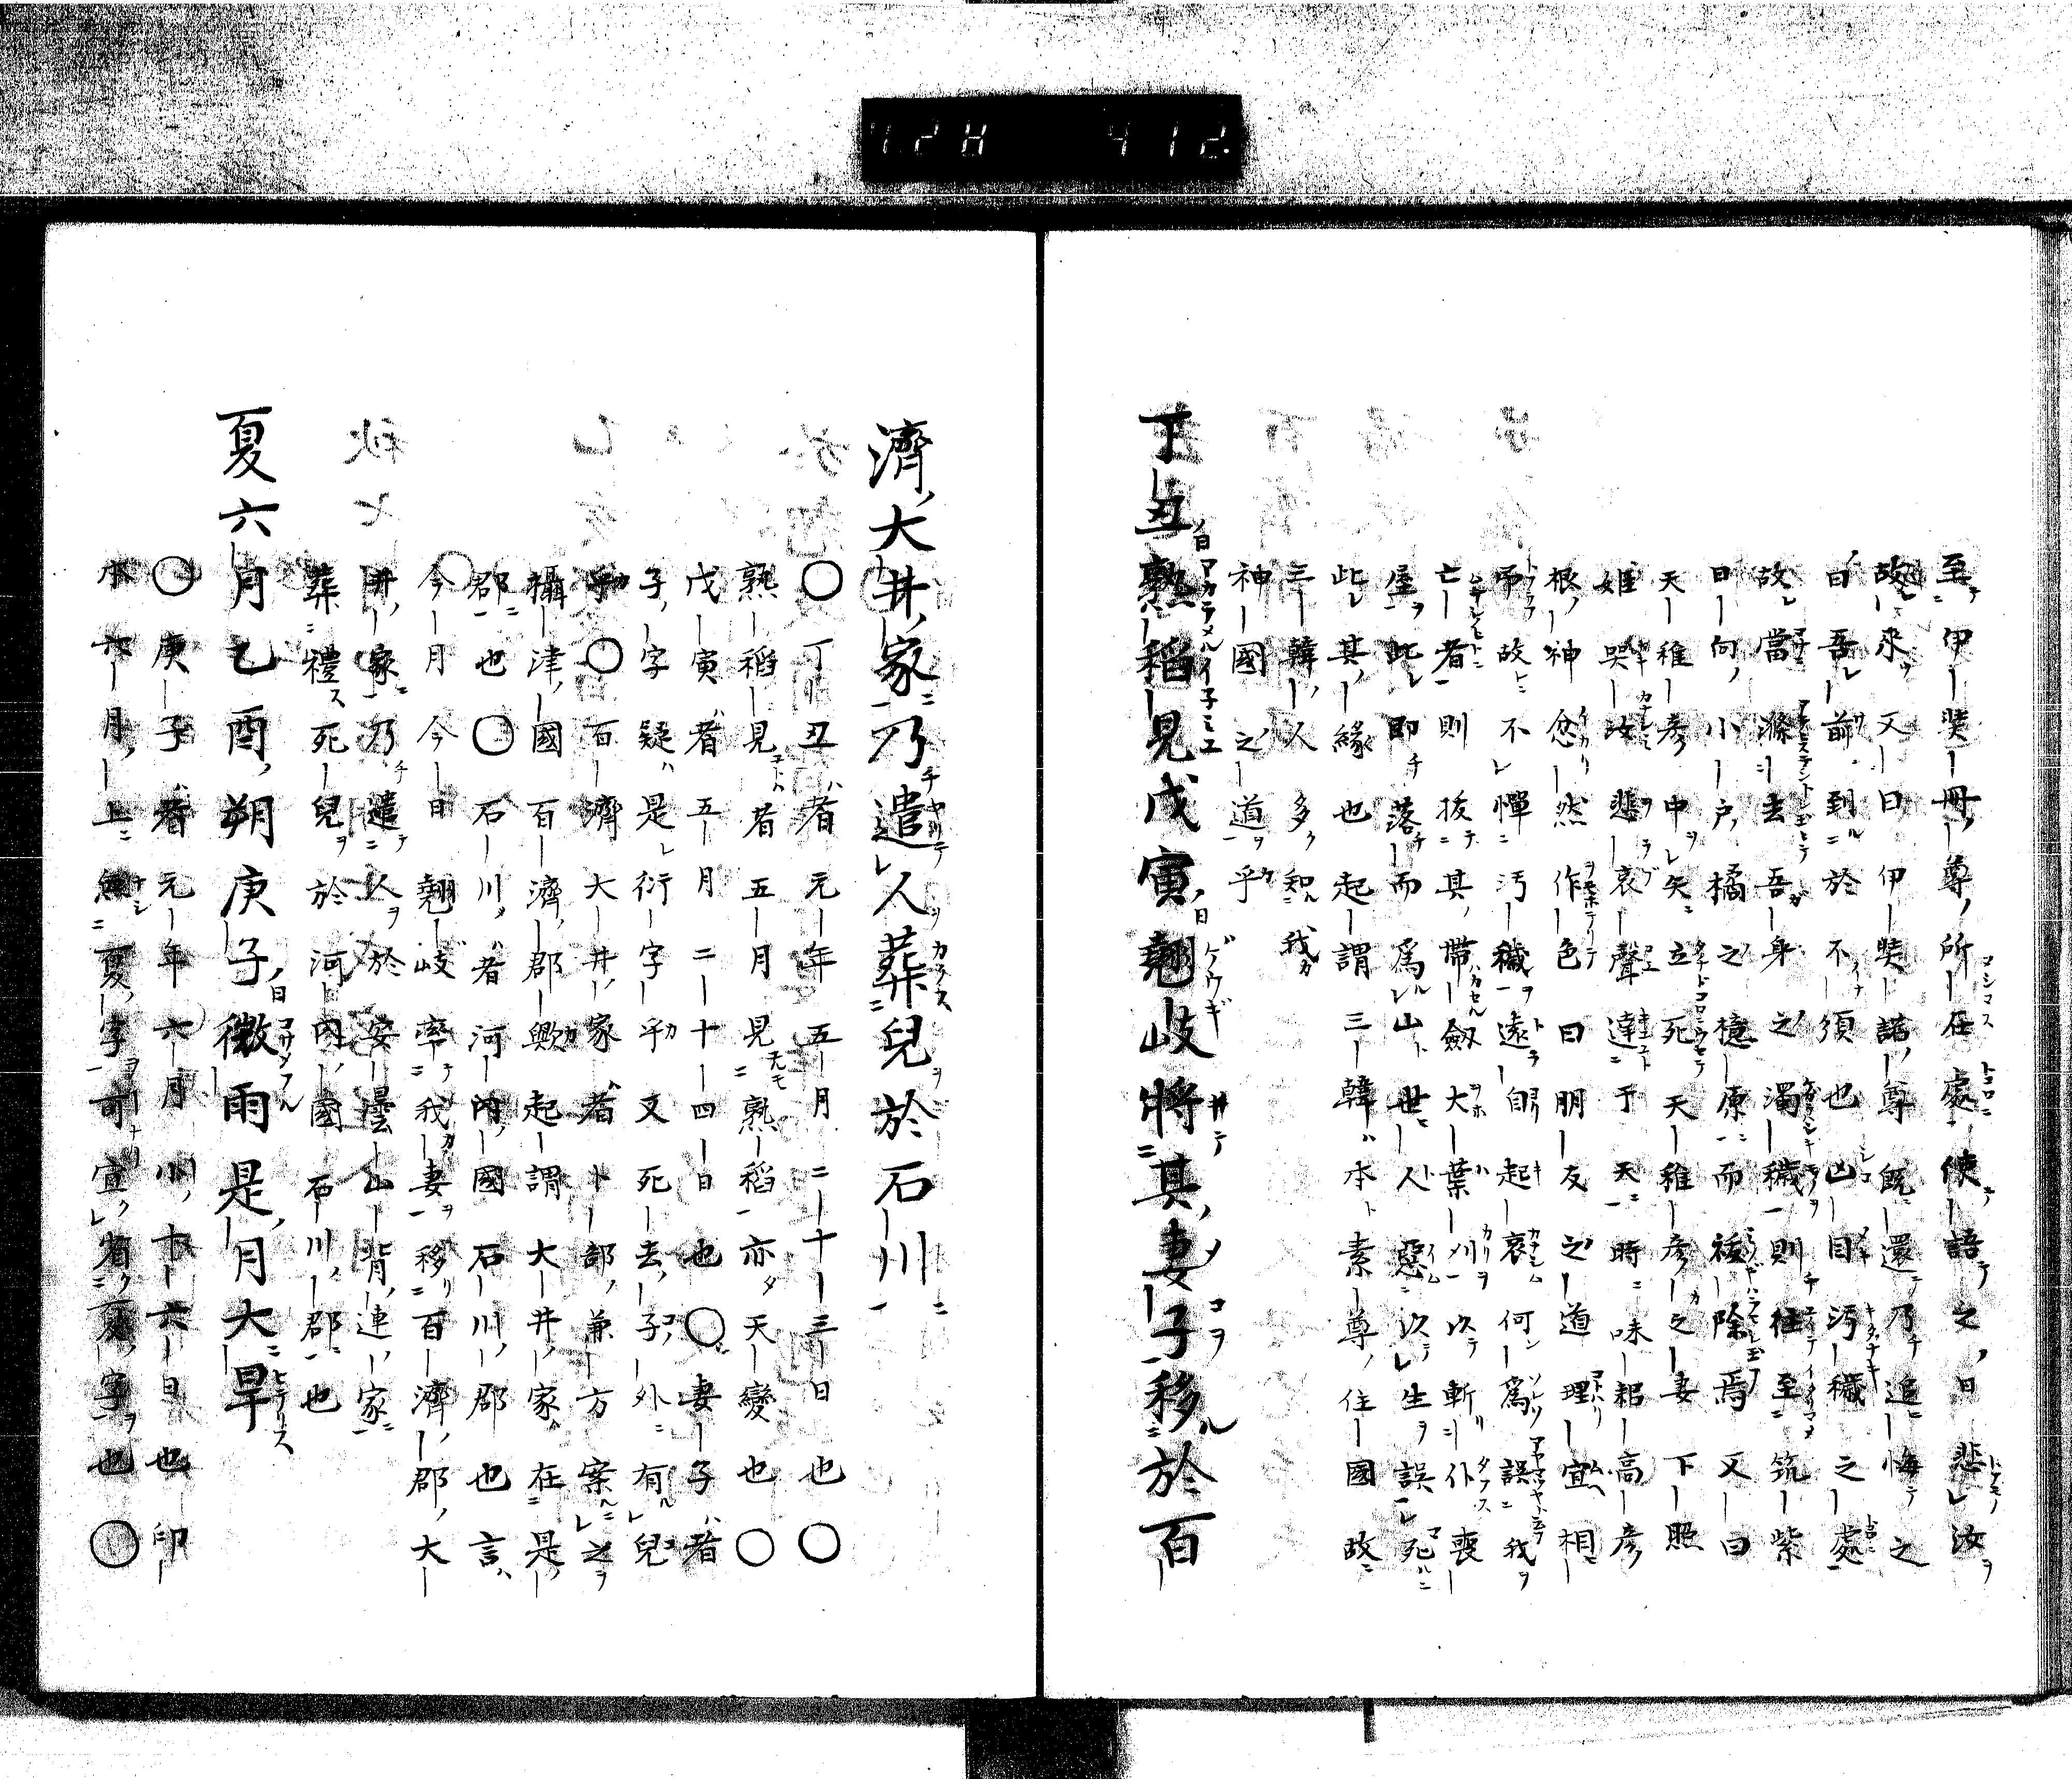 728 412
至伊奘冊尊所在處使語之曰悲汝
故來又曰伊奘諾尊既還乃追悔之
曰吾前到於不須也凶目汚穢之處
故當滌去吾身之濁穢則往至筑紫
日向小戸橘之檍原而祓除焉又曰
天稚彦中矢立死天稚彦之妻下照
姫哭汝悲哀聲達于天時味耜高彦
根神忿然作色曰朋友之道理宜相
弔故不憚汚穢遠自起哀何爲誤我
亡者則抜其帶劔大葉刈以斬仆喪
屋此即落而爲山世人惡以生誤死
此其緣也起謂三韓本素尊住國故
三韓人多知我
神國之道乎
丁丑熟稻見戊寅翹岐將其妻子移於百
濟大井家乃遣人葬兒於石川
〇丁丑者元年五月二十三日也〇
熟稻見者五月見熟稻亦天變也〇
戊寅者五月二十四日也〇妻子者
子字疑是衍字乎又死去子外有兒
乎〇百濟大井家者卜部兼方案之
攝津國百濟郡歟起謂大井家在是
郡也〇石川者河内國石川郡也言
今月今日翹岐率我妻移百濟郡大
井家乃遣人於安曇山背連家
葬禮死兒於河内國石川郡也
夏六月乙酉朔庚子微雨是月大旱
〇庚子者元年六月小十六日也印
本六月上無夏字可宜省夏字也〇